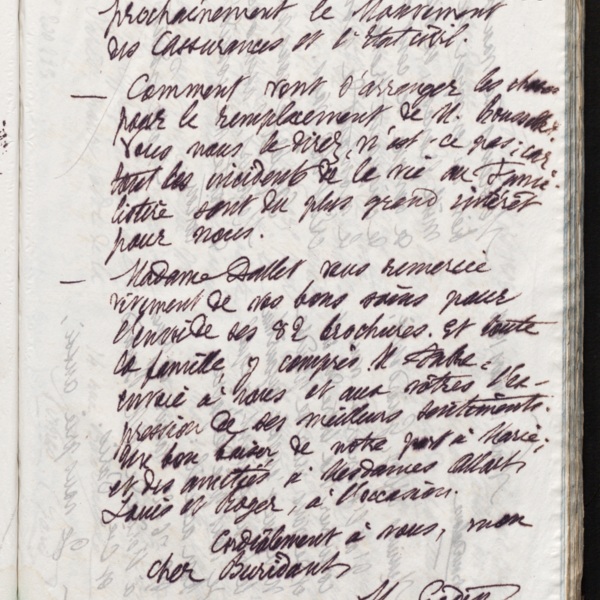 prochainement le Mouvement
des Assurances et l'Etat civil.
— Comment vont s'arranger les choses
pour le remplacement de M.
vous nous le direz, n'est-ce pas; car
tout les incidents de la vie au Famili-
listère sont du plus grand intérêt
pour nous.
— Madame Dallet vous remercie
vivement de vos bons soins pour
l'envoi de ses 82 brochures. Et toute
la famille y compris M.
envoie à vous et aux vôtres l'ex-
pression de ses meilleurs sentiments.
Un bon baiser de notre part à Marie;
et des amitiés à Mesdames Allart,
Louis et Roger, à l'occasion.
Cordialement à vous, mon
cher Buridant,